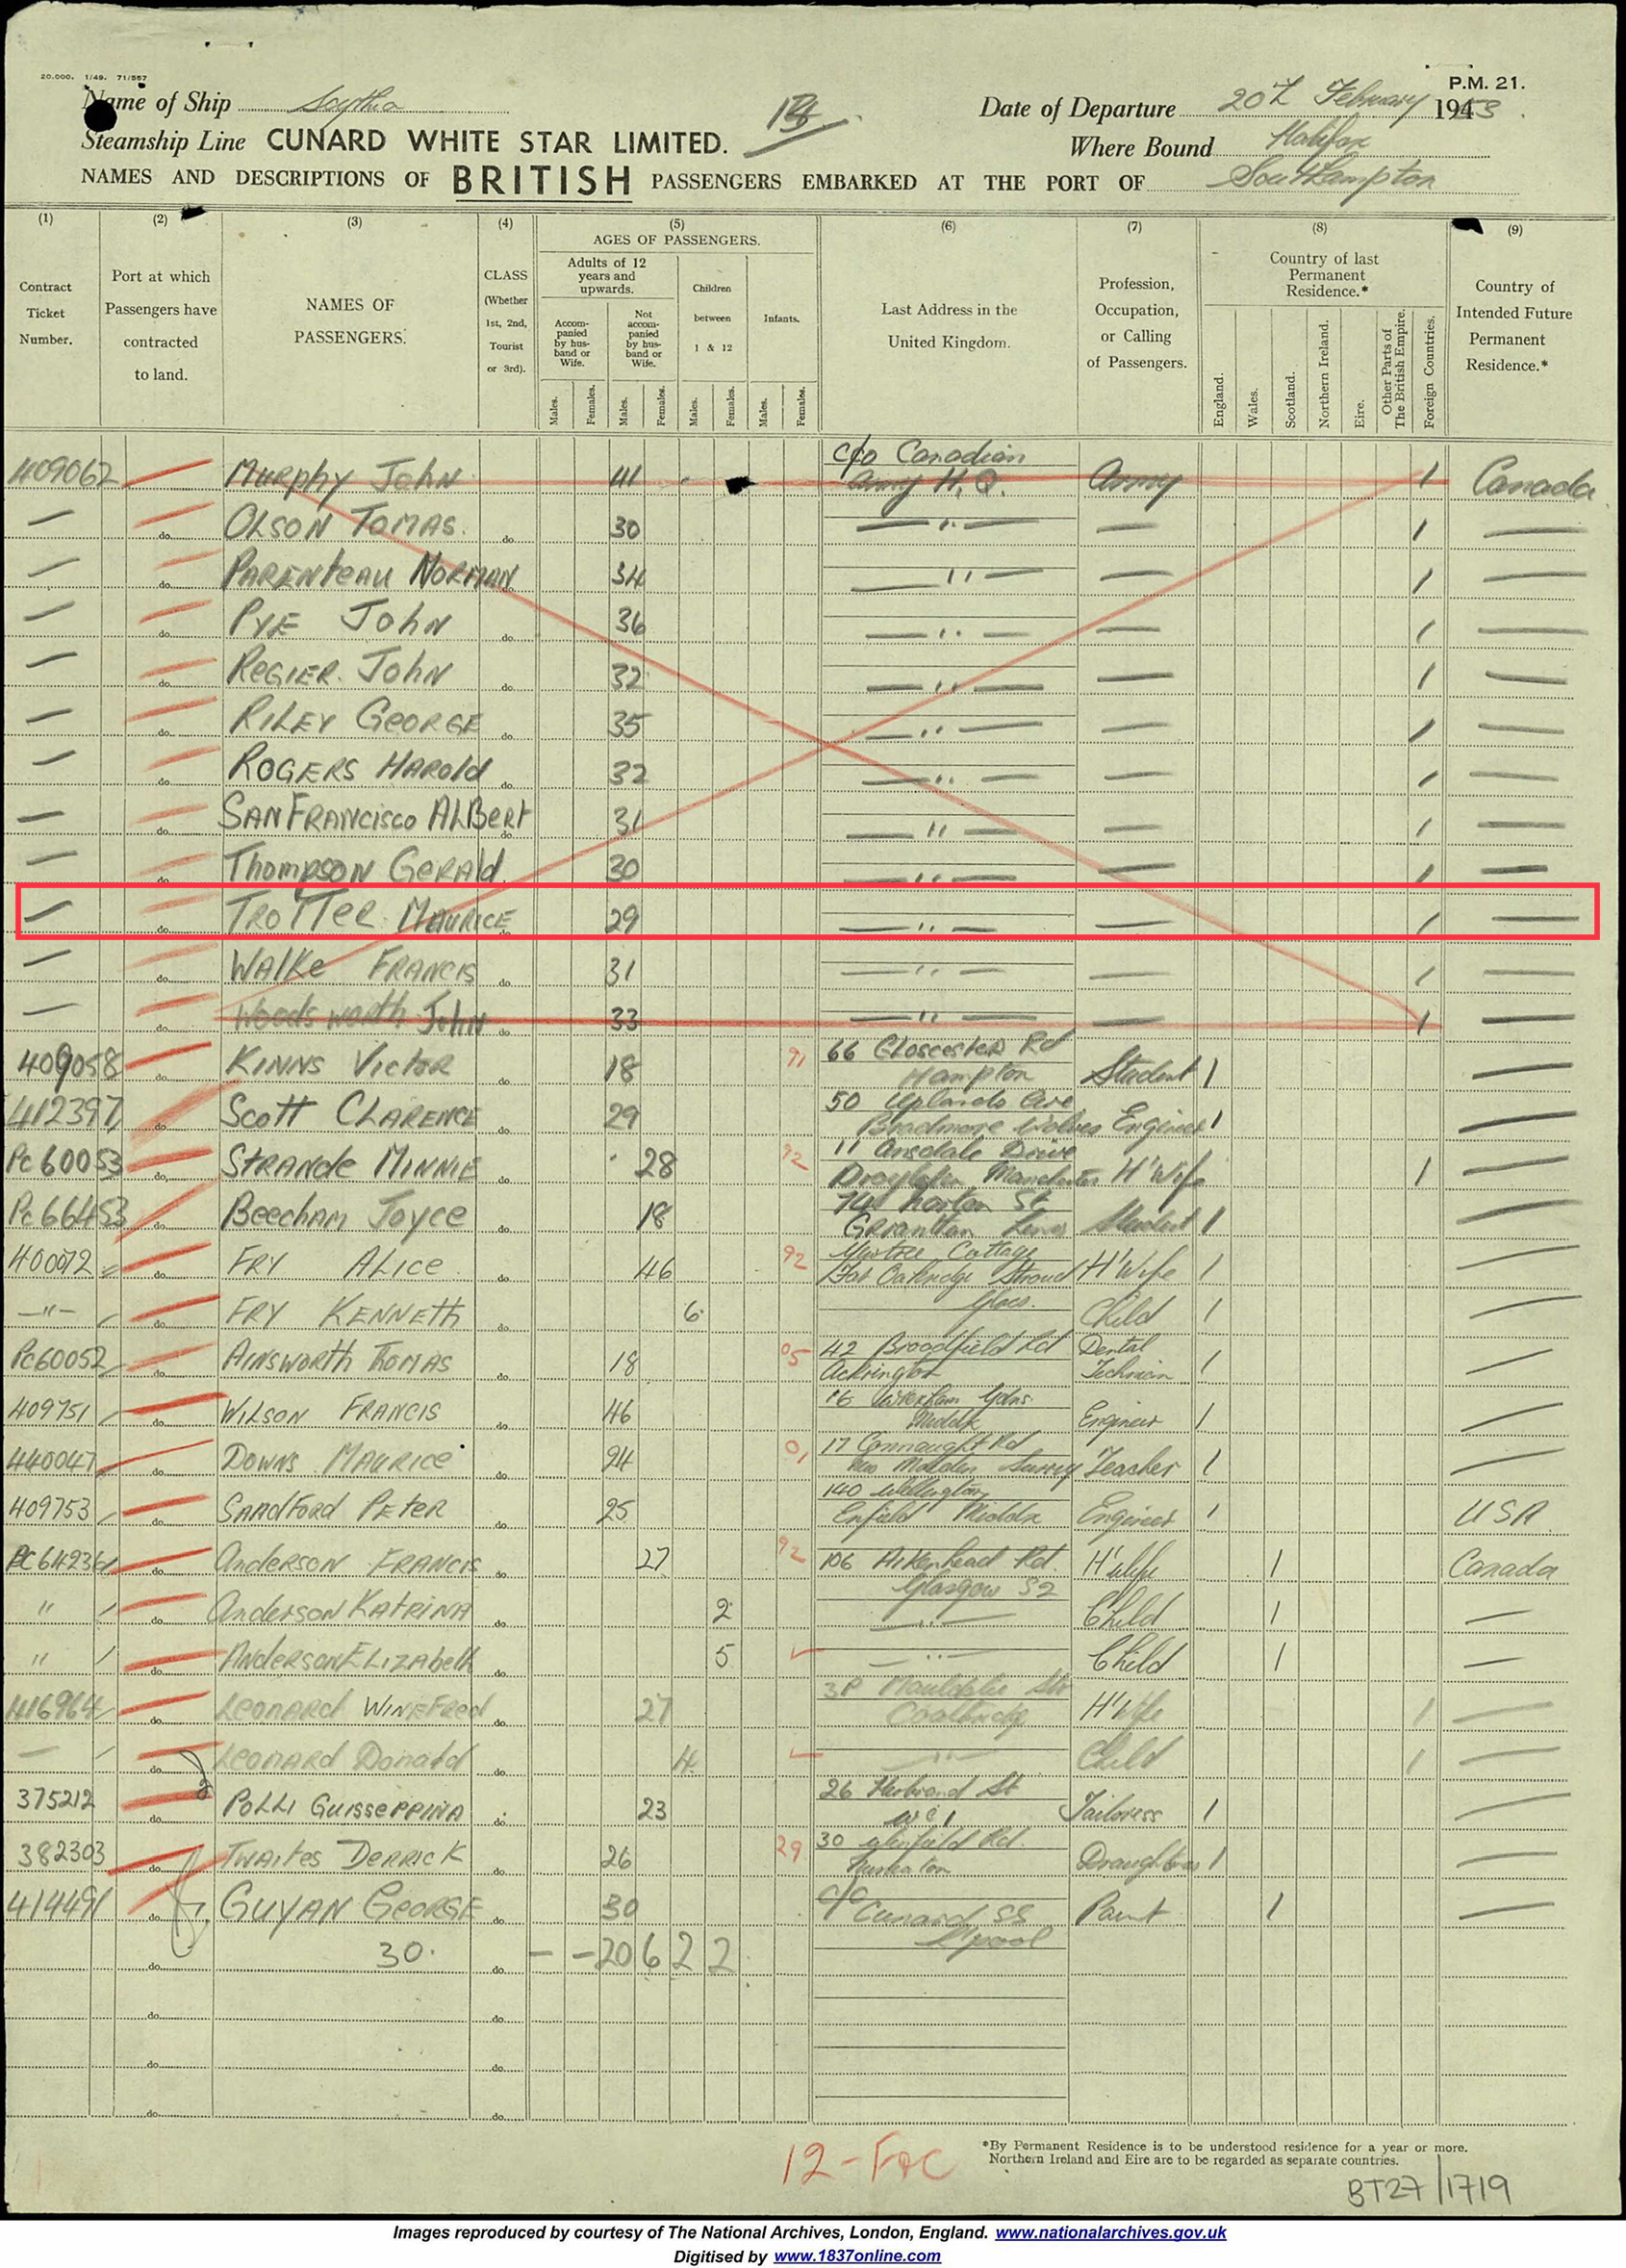 20.000. 1/49. 71/557
P.M. 21.
Name of Ship Scythia
Date of Departure 20th February 1953
Steamship Line CUNARD WHITE STAR LIMITED.
Where Bound Halifax
NAMES AND DESCRIPTIONS OF BRITISH PASSENGERS EMBARKED AT THE PORT OF Southampton
(1) (2) (3) (4) (5) (6) (7) (8) (9)
Contract Ticket Number.
Port at which Passengers have contracted to land.
NAMES OF PASSENGERS.
CLASS (Whether 1st, 2nd, Tourist or 3rd).
AGES OF PASSENGERS.
Adults of 12 years and upwards.
Accompanied by husband or Wife.
Not accompanied by husband or Wife.
Children between 1 & 12
Infants.
Males. Females. Males. Females. Males. Females. Males. Females.
Last Address in the United Kingdom.
Profession, Occupation, or Calling of Passengers.
Country of last Permanent Residence.*
England. Wales. Scotland. Northern Ireland. Eire. Other Parts of The British Empire. Foreign Countries.
Country of Intended Future Permanent Residence.*
409062 Murphy John 41 c/o Canadian Army H.Q. Army 1 Canada
— do OLSON TOMAS. do 30 — " — — 1 —
— do PARENTEAU NORMAN do 34 — " — — 1 —
— do PYE JOHN do 36 — " — — 1 —
— do REGIER. JOHN do 32 — " — — 1 —
— do RILEY GEORGE do 35 — " — — 1 —
— do ROGERS HAROLD do 32 — " — — 1 —
— do SANFRANCISCO ALBERT do 31 — " — — 1 —
— do THOMPSON GERALD 30 — " — — 1 —
— do TROTTER MAURICE do 29 — " — — 1 —
— do WALKE FRANCIS do 31 — " — — 1 —
— do Woodsworth John do 33 — " — — 1 —
409058 do KINNS VICTOR do 18 91 66 Gloscester Rd Hampton Student 1 —
412397 do SCOTT CLARENCE do 29 50 Uplands Ave Bradmore Wolves Engineer 1 —
PC60053 do STRANDE MINNIE do 28 92 11 Ansdale Drive Droylsden Manchester H'Wife 1 —
PC66453 do BEECHAM JOYCE do 18 Norton St Student 1 —
400072 do FRY ALICE do 46 92 Yewtree Cottage Far Oakridge Stroud H'Wife 1 —
—"— do FRY KENNETH do 6 Glos. Child 1 —
PC60052 do AINSWORTH THOMAS do 18 05 42 Broadfield Rd Accrington Dental Technician 1 —
409751 do WILSON FRANCIS do 46 16 Gdns. Middx Engineer 1 —
440047 do DOWNS MAURICE do 24 01 17 Connaught Rd New Malden Surrey Teacher 1 —
409753 do SANDFORD PETER do 25 140 Wellington Enfield Middx Engineer 1 USA
PC64236 do Anderson FRANCIS do 27 92 106 Aikenhead Rd. Glasgow S2 H'Wife 1 Canada
" do Anderson KATRINA do 2 — " — Child 1 —
" do Anderson ELIZABETH do 5 — " — Child 1 —
416964 do LEONARD WINEFRED do 27 H'Wife 1 —
— do LEONARD Donald do 4 " Child 1 —
375212 do POLLI GUISSEPPINA do 23 26 Herbrand St WC1 Tailoress 1 —
382303 do TWAITES DERRICK do 26 29 30 Glenfield Rd. Nuneaton Draughtsman 1 —
414491 do GUYAN GEORGE do 30 c/o Cunard SS L'pool 1 —
do 30. do — — 20 6 2 2
do do
do do
do do
12 - For
*By Permanent Residence is to be understood residence for a year or more.
Northern Ireland and Eire are to be regarded as separate countries.
BT27/1719
Images reproduced by courtesy of The National Archives, London, England. www.nationalarchives.gov.uk
Digitised by www.1837online.com